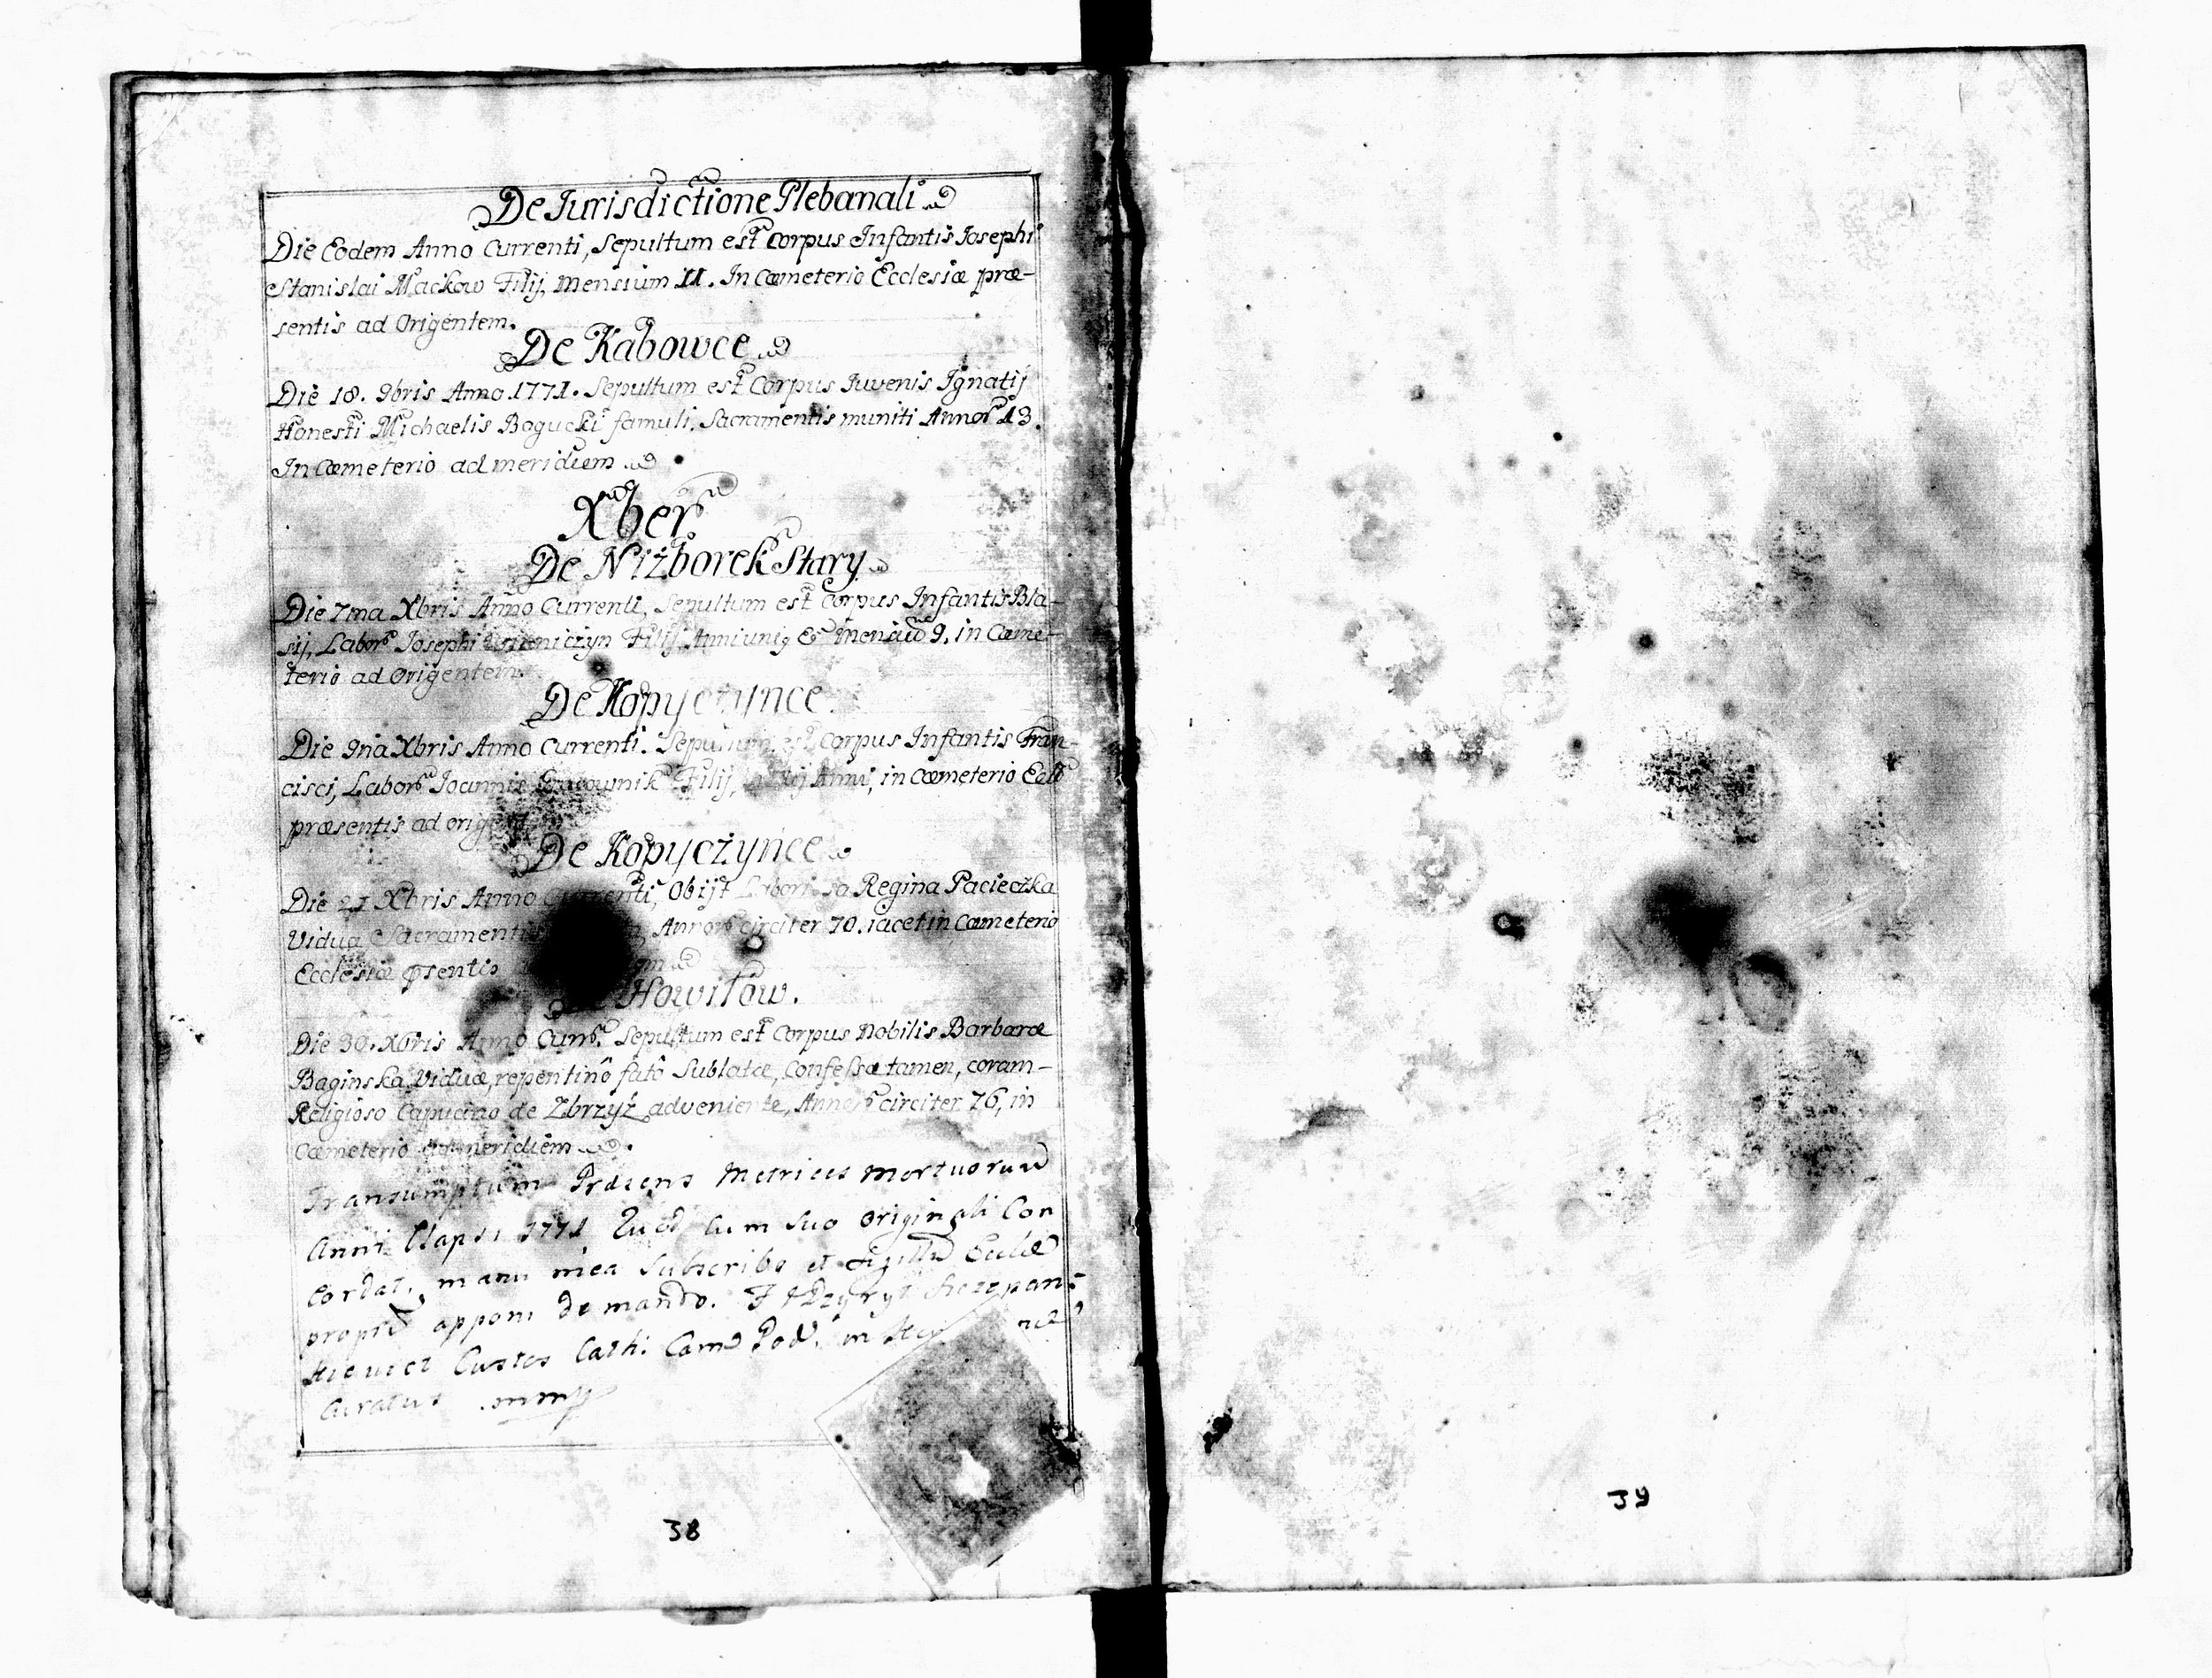 De Jurisdictione Plebanali
Die Eodem Anno Currenti, Sepultum est Corpus Infantis Josephi
Stanislai Mackow Filij, mensium 11. In Cœmeterio Ecclesiæ præ-
sentis ad Origentem.
De Kabowce
Die 18. 9bris Anno 1771. Sepultum est Corpus Juvenis Ignatij
Honesti Michaelis Bogucki famuli, Sacramentis muniti Annor 13.
In Cœmeterio ad meridiem
Xber
De Niżborek Stary
Die 7ma Xbris Anno Currenti, Sepultum est Corpus Infantis Bla-
sij, Labor Josephi Filij, Anni unis & 9. in Cœme-
terio ad Origentem
De Kopyczynce
Die 9na Xbris Anno Currenti. Sepultum est Corpus Infantis Fran-
cisci, Labor Joannis Filij, Anni, in Cœmeterio Eccl
præsentis ad
De Kopyczyńce
Die 21 Xbris Anno Currenti, Obijt Regina Pacieczka
Vidua Sacramentis Annor circiter 70. iacet in Cœmeterio
Ecclesiæ psentis
Howiłow.
Die 30. Xbris Anno Curr. Sepultum est Corpus Nobilis Barbaræ
Baginska Viduæ, repentinô fatô Sublatæ, Confessæ tamen, coram-
Religioso Capucino de Zbrzyż adveniente, Annor circiter 76, in
Cœmeterio ad meridiem
Transumptum Præsens Metrices Mortuorum
Anni Elapsi 1771 Quod Cum Suo Originali Con
cordat, manu mea Subscribo et Sigillu Eccliæ
propriu apponi demando.
Custos Cath. Cam Pod.
Curatus mmp
38
39